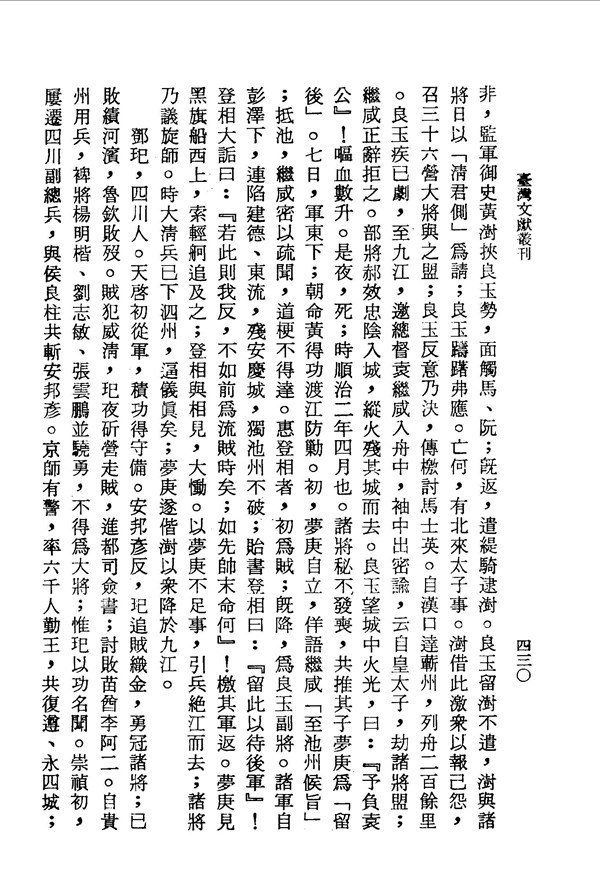 臺灣文獻叢刊
四三〇
非，監軍御史黃澍挾良玉勢，面觸馬、阮；旣返，遣緹騎逮澍。良玉留澍不遣，澍與諸
將日以「淸君側」爲請；良玉躊躇弗應。亡何，有北來太子事。澍借此激衆以報己怨，
召三十六營大將與之盟；良玉反意乃決，傳檄討馬士英。自漢口達蘄州，列舟二百餘里
。良玉疾已劇，至九江，邀總督袁繼咸入舟中，袖中出密諭，云自皇太子，劫諸將盟；
繼咸正辭拒之。部將郝效忠陰入城，縱火殘其城而去。良玉望城中火光，曰：『予負袁
公』！嘔血數升。是夜，死；時順治二年四月也。諸將秘不發喪，共推其子夢庚爲「留
後」。七日，軍東下；朝命黃得功渡江防勦。初，夢庚自立，佯語繼咸「至池州侯旨」
；抵池，繼咸密以疏聞，道梗不得達。惠登相者，初爲賊；旣降，爲良玉副將。諸軍自
彭澤下，連陷建德、東流，殘安慶城，獨池州不破；貽書登相曰：『留此以待後軍』！
登相大詬曰：『若此則我反，不如前爲流賊時矣；如先帥末命何』！檄其軍返。夢庚見
黑旗船西上，索輕舸追及之；登相與相見，大慟。以夢庚不足事，引兵絕江而去；諸將
乃議旋師。時大淸兵已下泗州，逼儀眞矣；夢庚遂偕澍以衆降於九江。
鄧玘，四川人。天啓初從軍，積功得守備。安邦彥反，玘追賊織金，勇冠諸將；已
敗績河濱，魯欽敗歿。賊犯威淸，玘夜斫營走賊，進都司僉書；討敗苗酋李阿二。自貴
州用兵，裨將楊明楷、劉志敏、張雲鵬並驍勇，不得爲大將；惟玘以功名聞。崇禎初，
屢遷四川副總兵，與侯良柱共斬安邦彥。京師有警，率六千人勤王，共復遵、永四城；